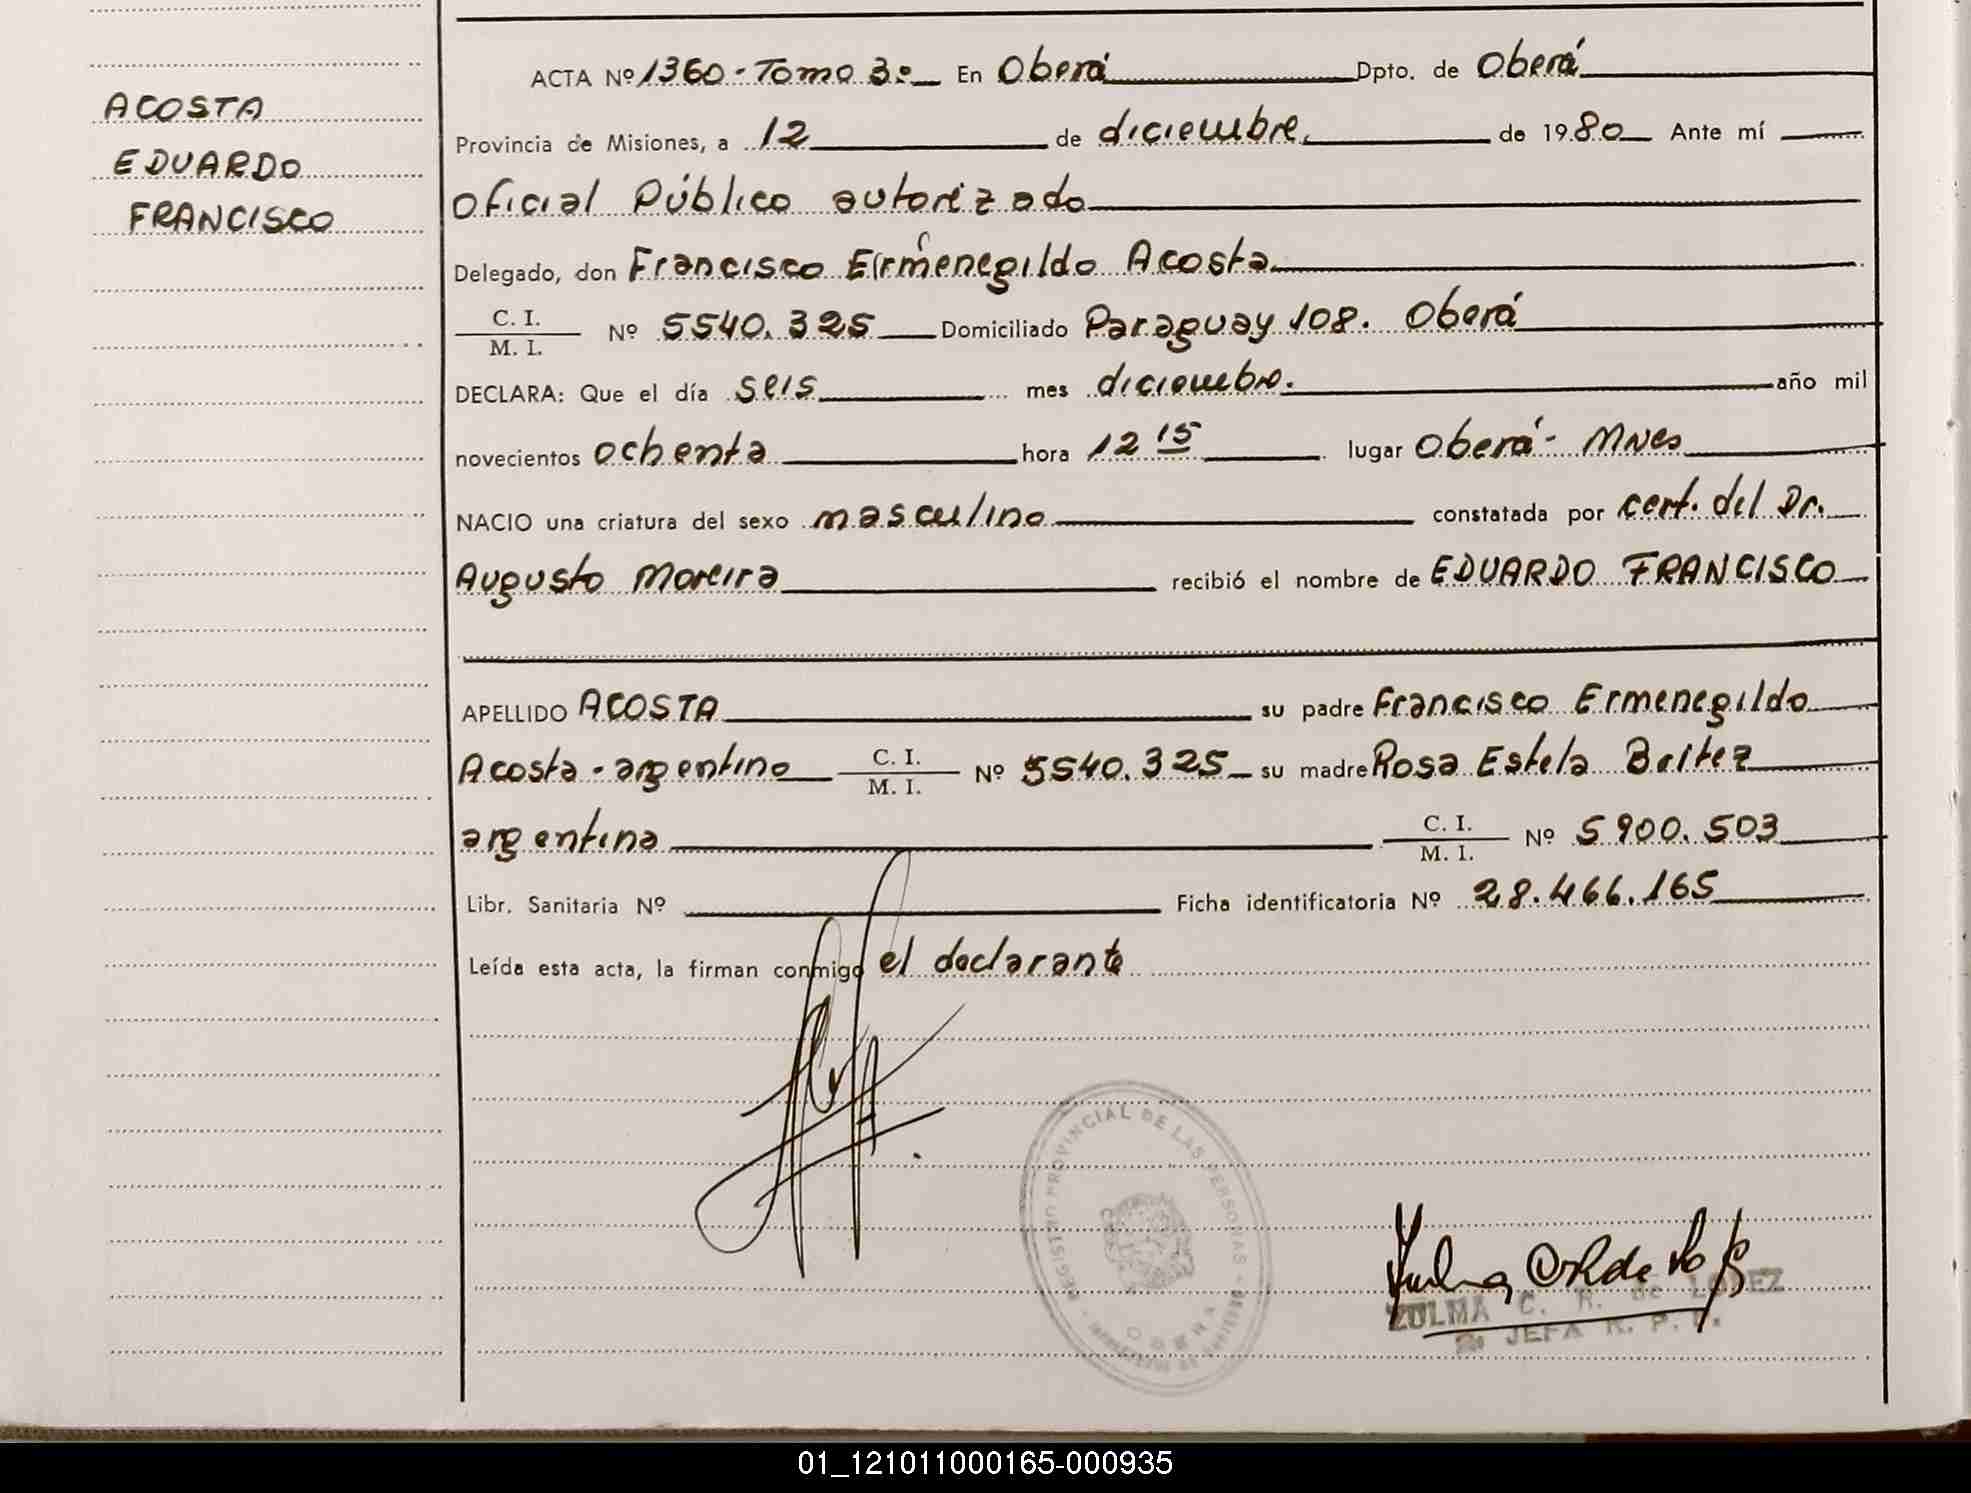 ACOSTA
EDUARDO
FRANCISCO
ACTA Nº 1360 - Tomo 3º En Oberá Dpto. de Oberá
Provincia de Misiones, a 12 de diciembre de 1980 Ante mí
Oficial Público autorizado
Delegado, don Francisco Ermenegildo Acosta
C. I.
M. I. Nº 5540.325 Domiciliado Paraguay 108. Oberá
DECLARA: Que el día seis mes diciembre. año mil
novecientos ochenta hora 12 15 lugar Oberá - Mnes
NACIO una criatura del sexo masculino constatada por cert. del Dr.
Augusto Moreira recibió el nombre de EDUARDO FRANCISCO
APELLIDO ACOSTA su padre Francisco Ermenegildo
Acosta - argentino C. I. M. I. Nº 5540.325 su madre Rosa Estela Britez
argentina C. I. M. I. Nº 5900.503
Libr. Sanitaria Nº Ficha identificatoria Nº 28.466.165
Leída esta acta, la firman conmigo el declarante
REGISTRO PROVINCIAL DE LAS PERSONAS
OBERA
ZULMA C. R. de LOPEZ
JEFA R. P.
01_121011000165-000935